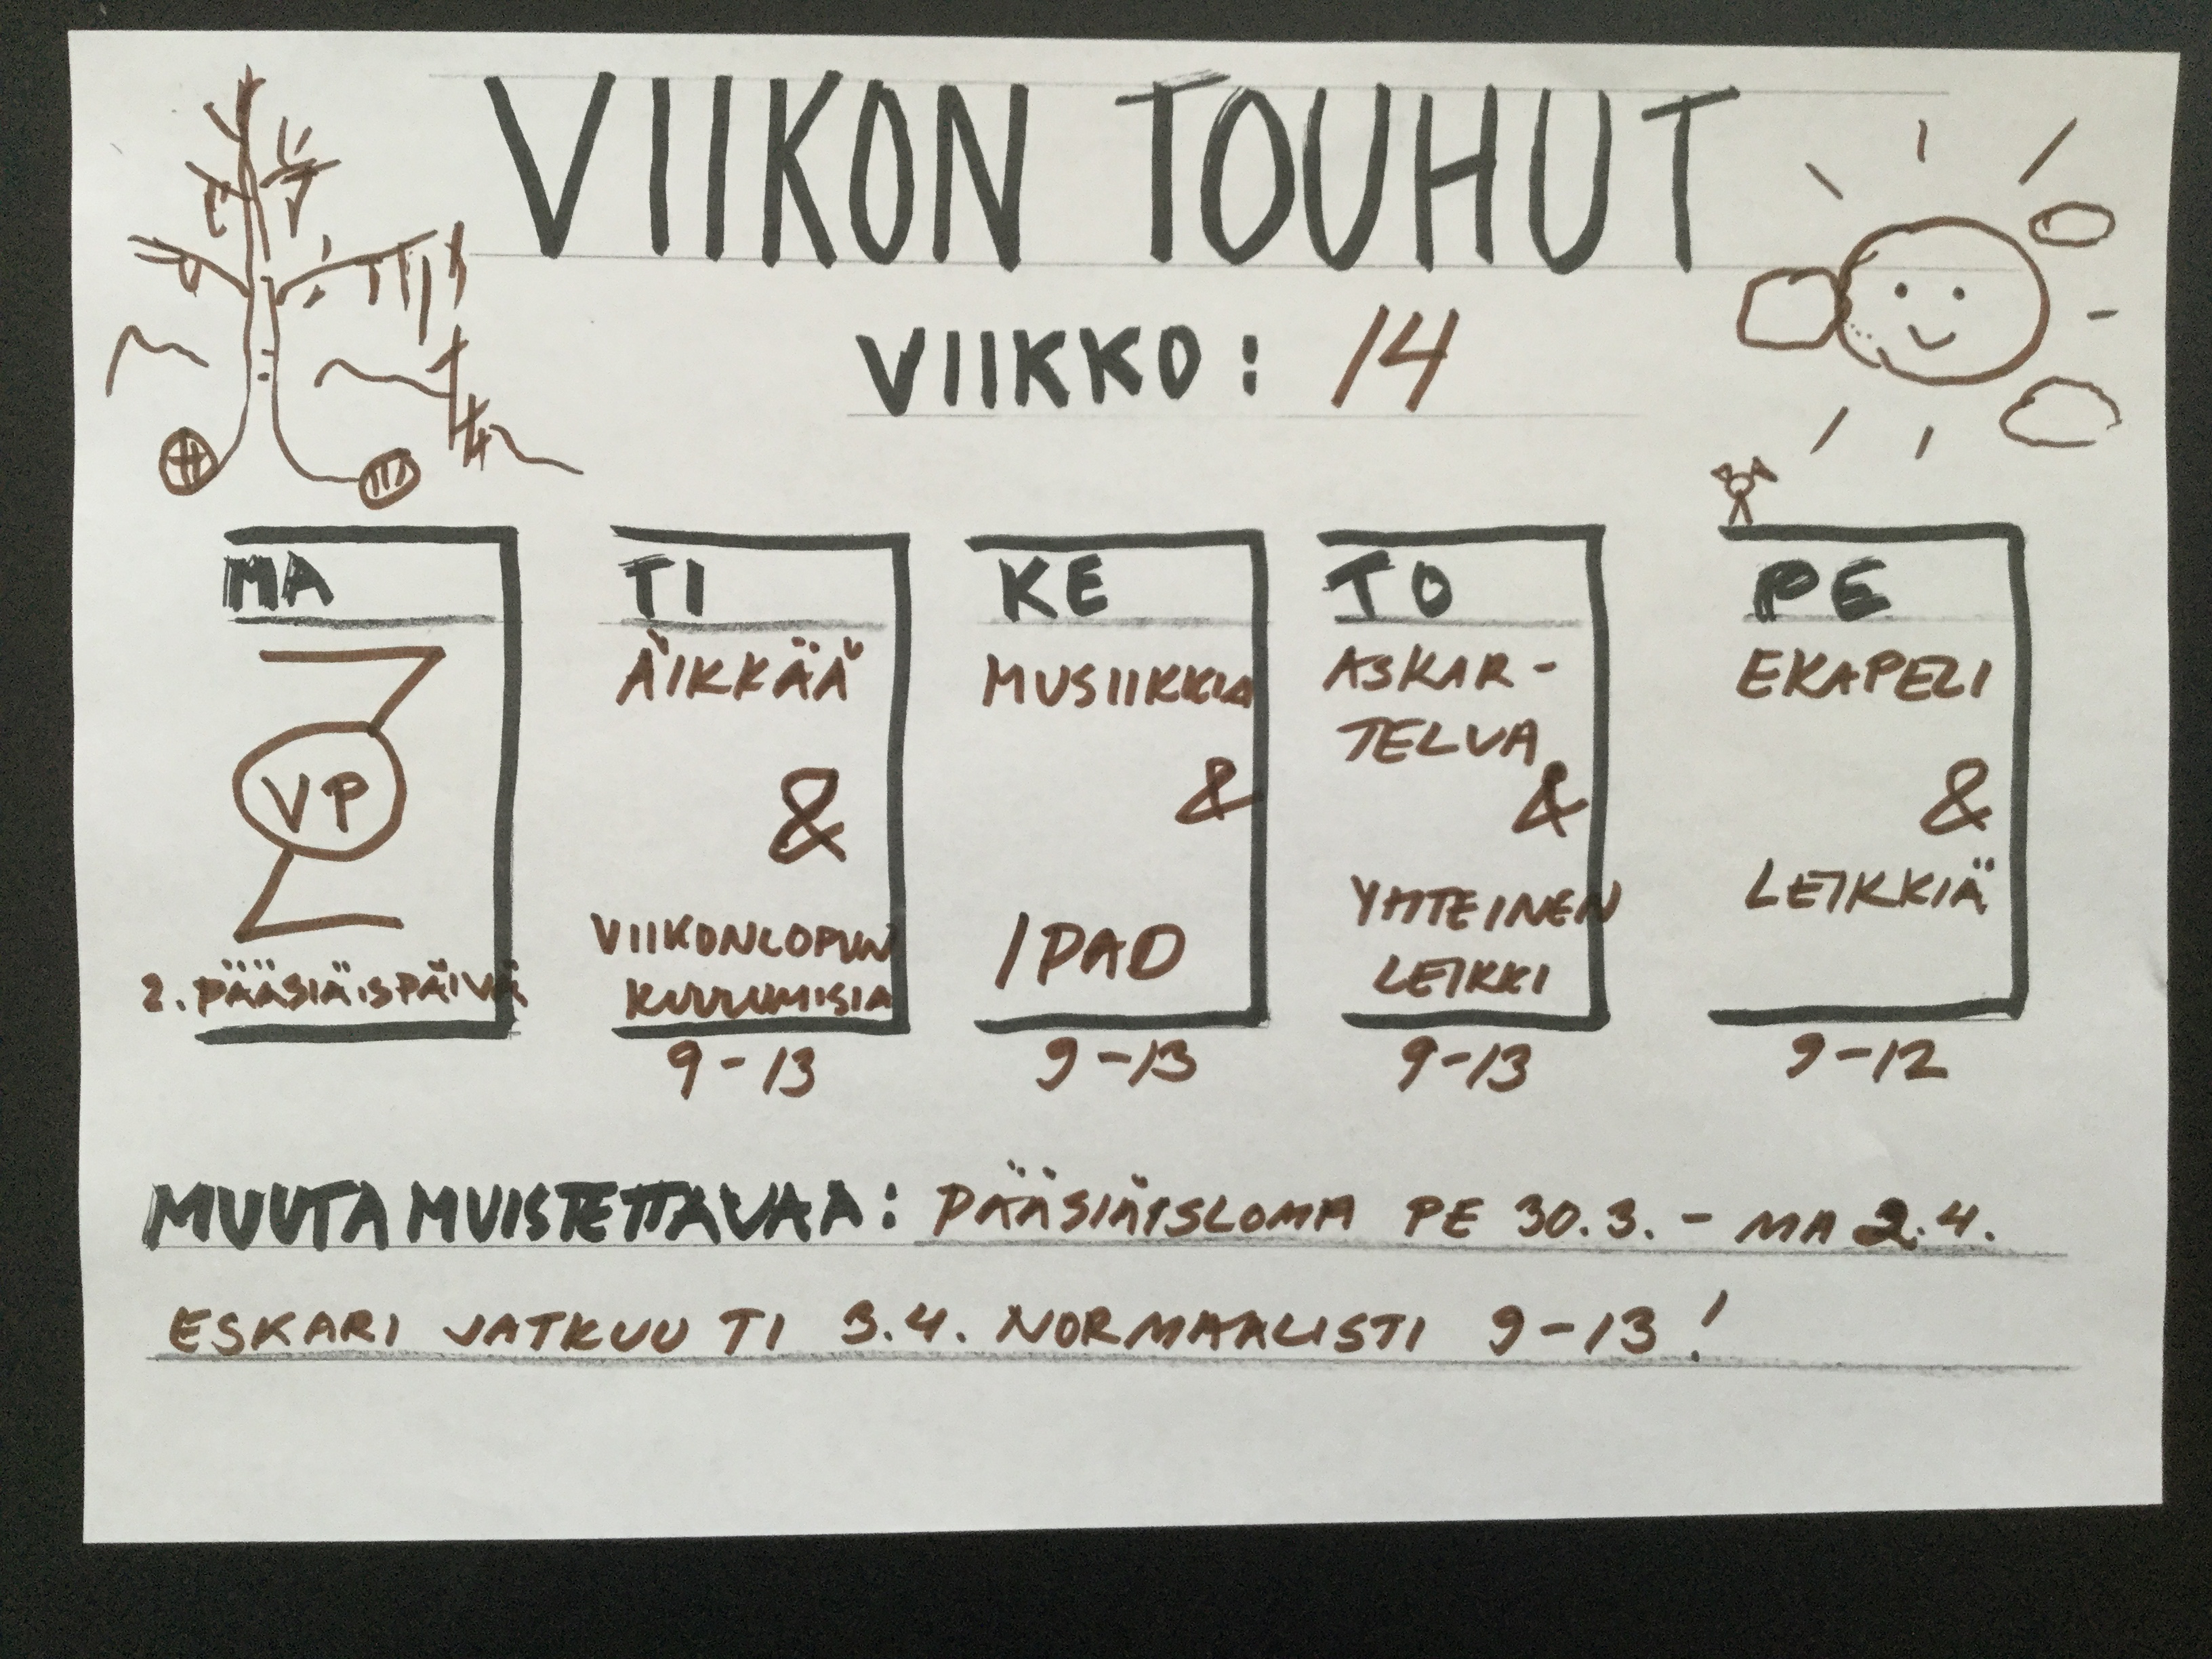 VIIKON TOUHUT
VIIKKO: 14
MA
VP
2. PÄÄSIÄISPÄIVÄ
TI
ÄIKKÄÄ
&
VIIKONLOPUN
KUULUMISIA
9-13
KE
MUSIIKKIA
&
IPAD
9-13
TO
ASKAR-
TELUA
&
YHTEINEN
LEIKKI
9-13
PE
EKAPELI
&
LEIKKIÄ
9-12
MUUTA MUISTETTAVAA: PÄÄSIÄISLOMA PE 30.3. - MA 2.4.
ESKARI JATKUU TI 3.4. NORMAALISTI 9-13!